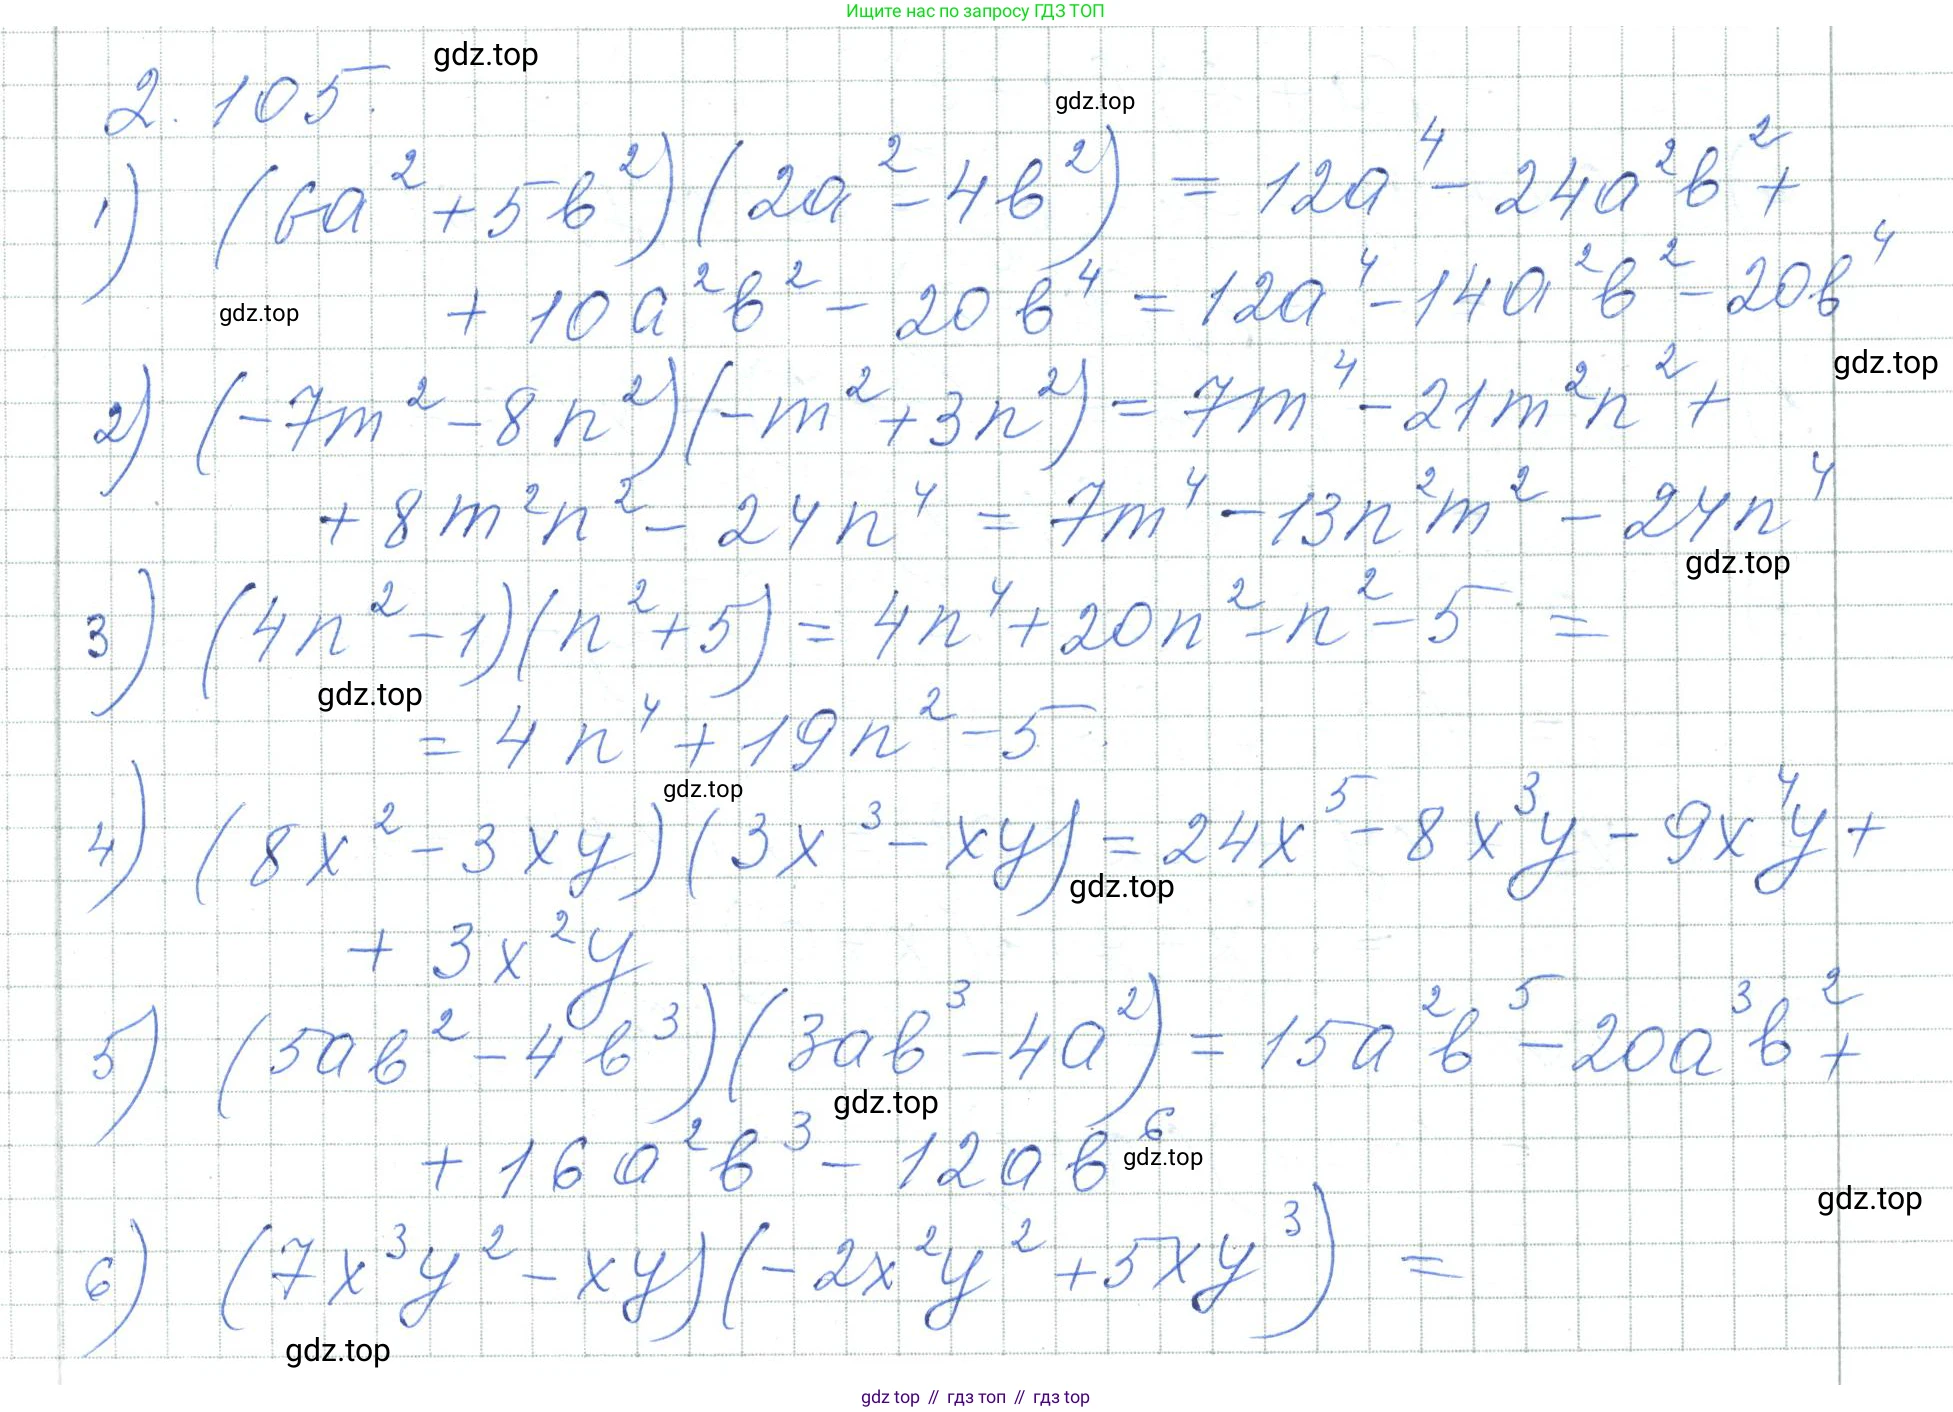 Ищите нас по запросу ГДЗ ТОП
gdz.top
2.105.
gdz.top
1) (6a² + 5b²)(2a² - 4b²) = 12a⁴ - 24a²b² +
+ 10a²b² - 20b⁴ = 12a⁴ - 14a²b² - 20b⁴
gdz.top
gdz.top
2) (-7m² - 8n²)(-m² + 3n²) = 7m⁴ - 21m²n² +
+ 8m²n² - 24n⁴ = 7m⁴ - 13n²m² - 24n⁴
gdz.top
3) (4n² - 1)(n² + 5) = 4n⁴ + 20n² - n² - 5 =
gdz.top
= 4n⁴ + 19n² - 5.
gdz.top
4) (8x² - 3xy)(3x³ - xy) = 24x⁵ - 8x³y - 9x⁴y +
gdz.top
+ 3x²y
5) (5ab² - 4b³)(3ab³ - 4a²) = 15a²b⁵ - 20a³b² +
gdz.top
+ 16a²b³ - 12ab⁶
gdz.top
gdz.top
6) (7x³y² - xy)(-2x²y² + 5xy³) =
gdz.top
gdz.top // гдз топ // гдз.top